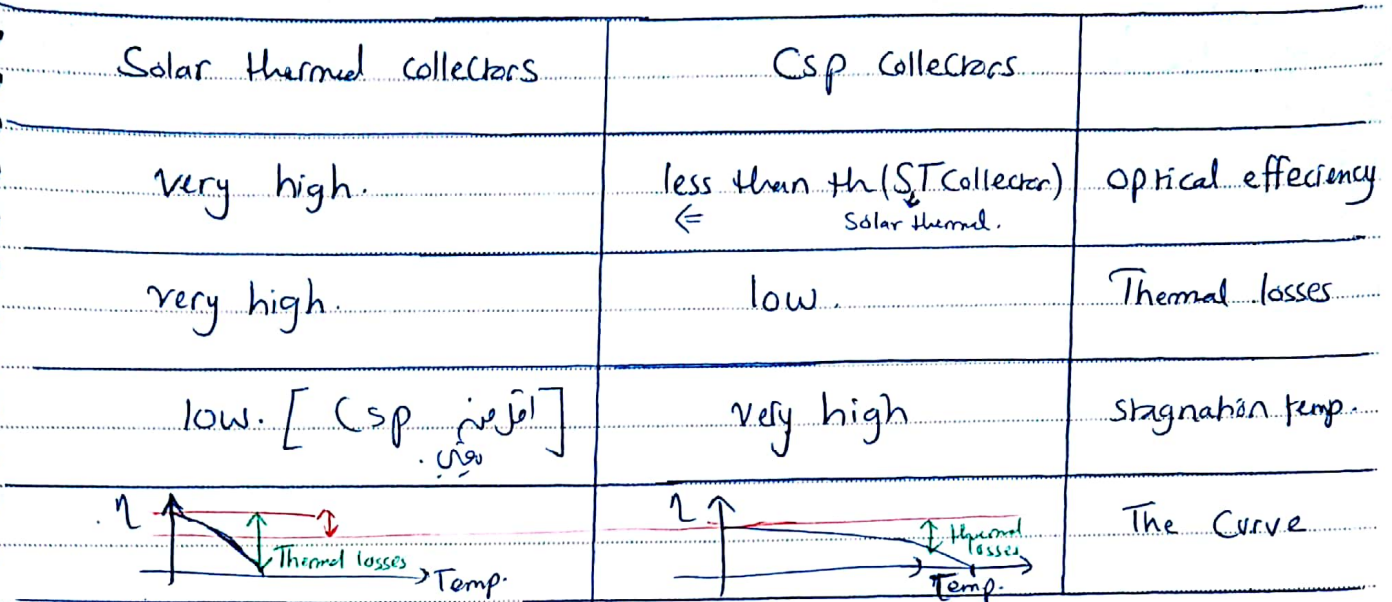 Solar thermal collectors
Csp Collectors
very high.
less than th (ST Collector)
optical effeciency
⇐
Solar thermal.
very high.
low.
Thermal losses
low. [ Csp أقل من ]
very high
stagnation temp.
η
Thermal losses
Temp.
η
thermal
losses
Temp.
The Curve